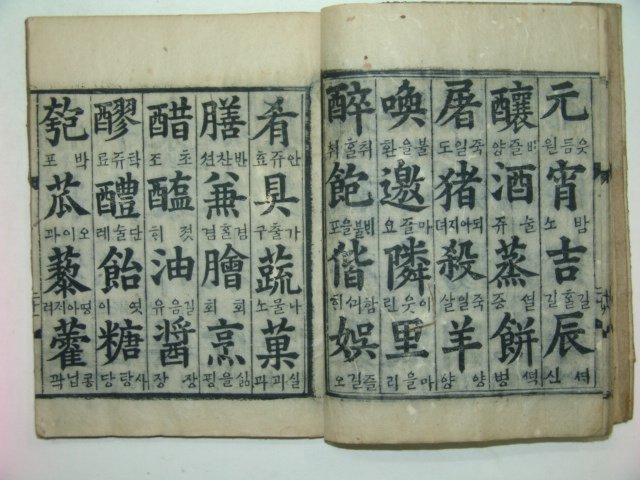 元 읏듬원
宵 밤소
吉 길홀길
辰
釀 양
酒 술쥬
蒸 증
餠 병
屠 죽일도
猪 되아지뎌
殺 죽일살
羊 양양
喚 불을환
邀 마즐요
隣 이웃린
里 마을리
醉 취홀취
飽 포
偕
娛 즐길오
肴 안쥬효
具 가출구
蔬 나물소
菓 실과과
膳 반찬션
兼 겸홀겸
膾 회회
烹 삶을핑
醋 초조
醢 젓히
油 기름유
醬 장장
醪 탁쥬료
醴 단술례
飴 엿이
糖 사탕당
匏 박포
苽 오이과
藜 려
藿 콩닙곽